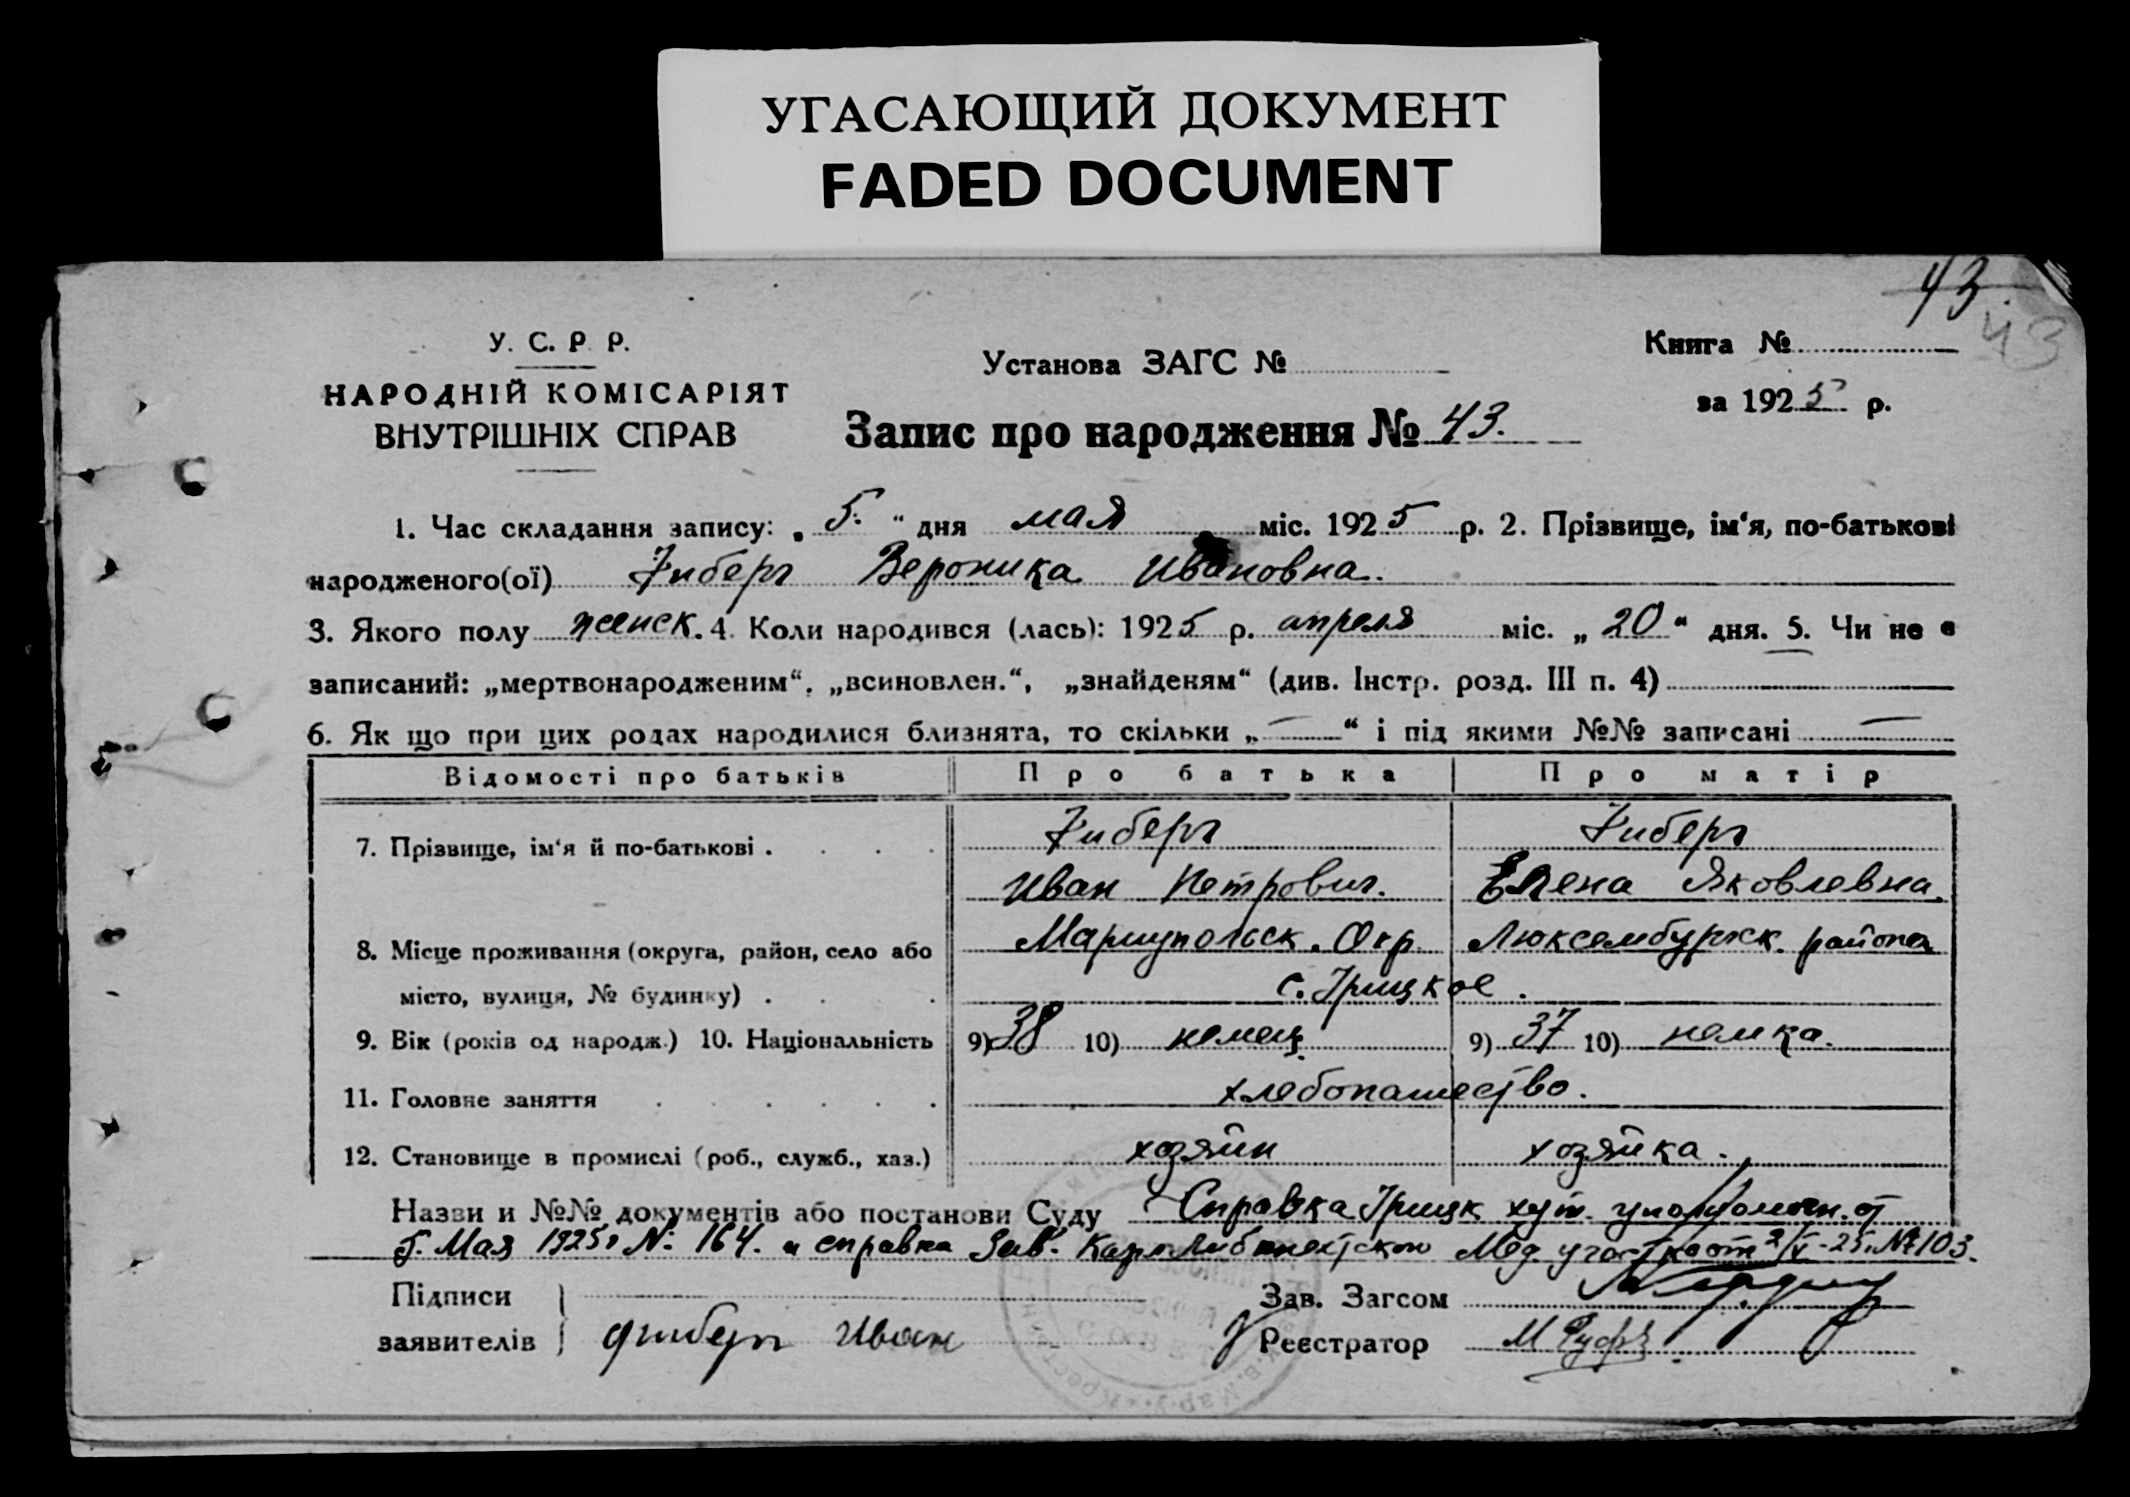 УГАСАЮЩИЙ ДОКУМЕНТ
FADED DOCUMENT
43
43
У. С. Р. Р.
НАРОДНІЙ КОМІСАРІЯТ
ВНУТРІШНІХ СПРАВ
Установа ЗАГС №
Запис про народження № 43.
Книга №
за 1925 р.
1. Час складання запису: „5.“ дня мая міс. 1925 р. 2. Прізвище, ім'я, по-батькові
народженого(ої) Зиберг Вероника Ивановна.
3. Якого полу женск. 4. Коли народився (лась): 1925 р. апреля міс. „20“ дня. 5. Чи не є
записаний: „мертвонародженим“, „всиновлен.“, „знайденям“ (див. Інстр. розд. III п. 4)
6. Як що при цих родах народилися близнята, то скільки „—“ і під якими №№ записані —
Відомості про батьків Про батька Про матір
7. Прізвище, ім'я й по-батькові . Зиберг Зиберг
Иван Петрович. Елена Яковлевна.
8. Місце проживання (округа, район, село або Мариупольск. Окр. Люксембургск. района
місто, вулиця, № будинку) . с. Грицкое.
9. Вік (років од народж.) 10. Національність 9) 38 10) немец 9) 37 10) немка.
11. Головне заняття хлебопашество.
12. Становище в промислі (роб., служб., хаз.) хозяин хозяйка.
Назви и №№ документів або постанови Суду Справка Грицк хут. уполномоч. от
5. Мая 1925 г N: 164. и справка Зав. Мед. участком от 2/V-25. № 103.
Підписи
заявителів Иван
Зав. Загсом
Реєстратор М